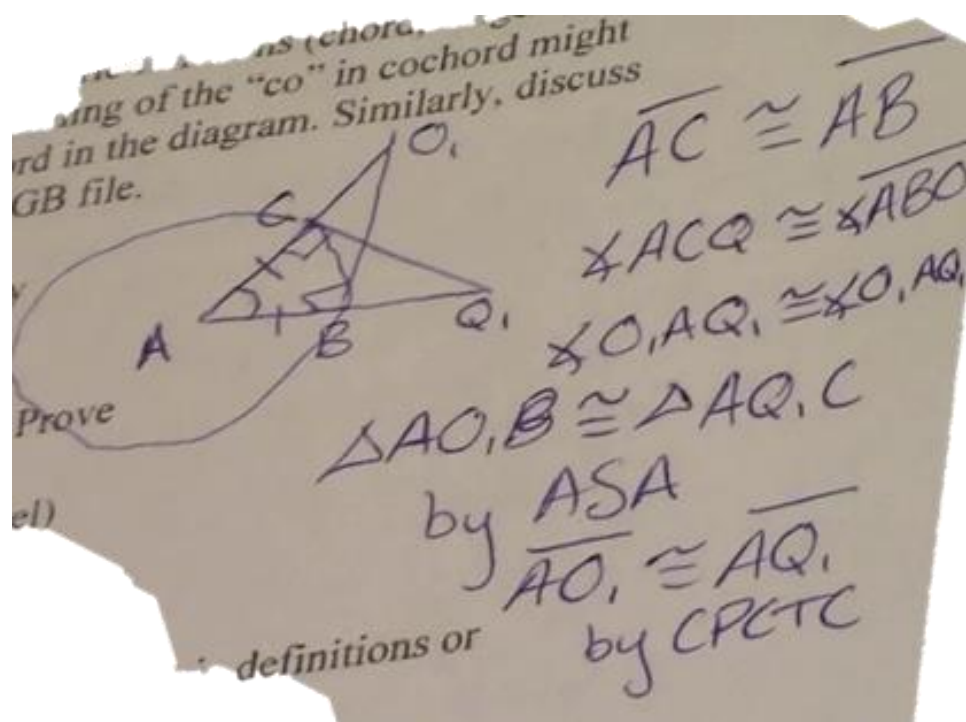 ns (chord,
ing of the "co" in cochord might
rd in the diagram. Similarly, discuss
GB file.
O₁
C
A
B
Q₁
Prove
el)
definitions or
AC ≅ AB
∡ACQ ≅ ∡ABO
∡O₁AQ₁ ≅ ∡O₁AQ₁
△AO₁B ≅ △AQ₁C
by ASA
AO₁ ≅ AQ₁
by CPCTC